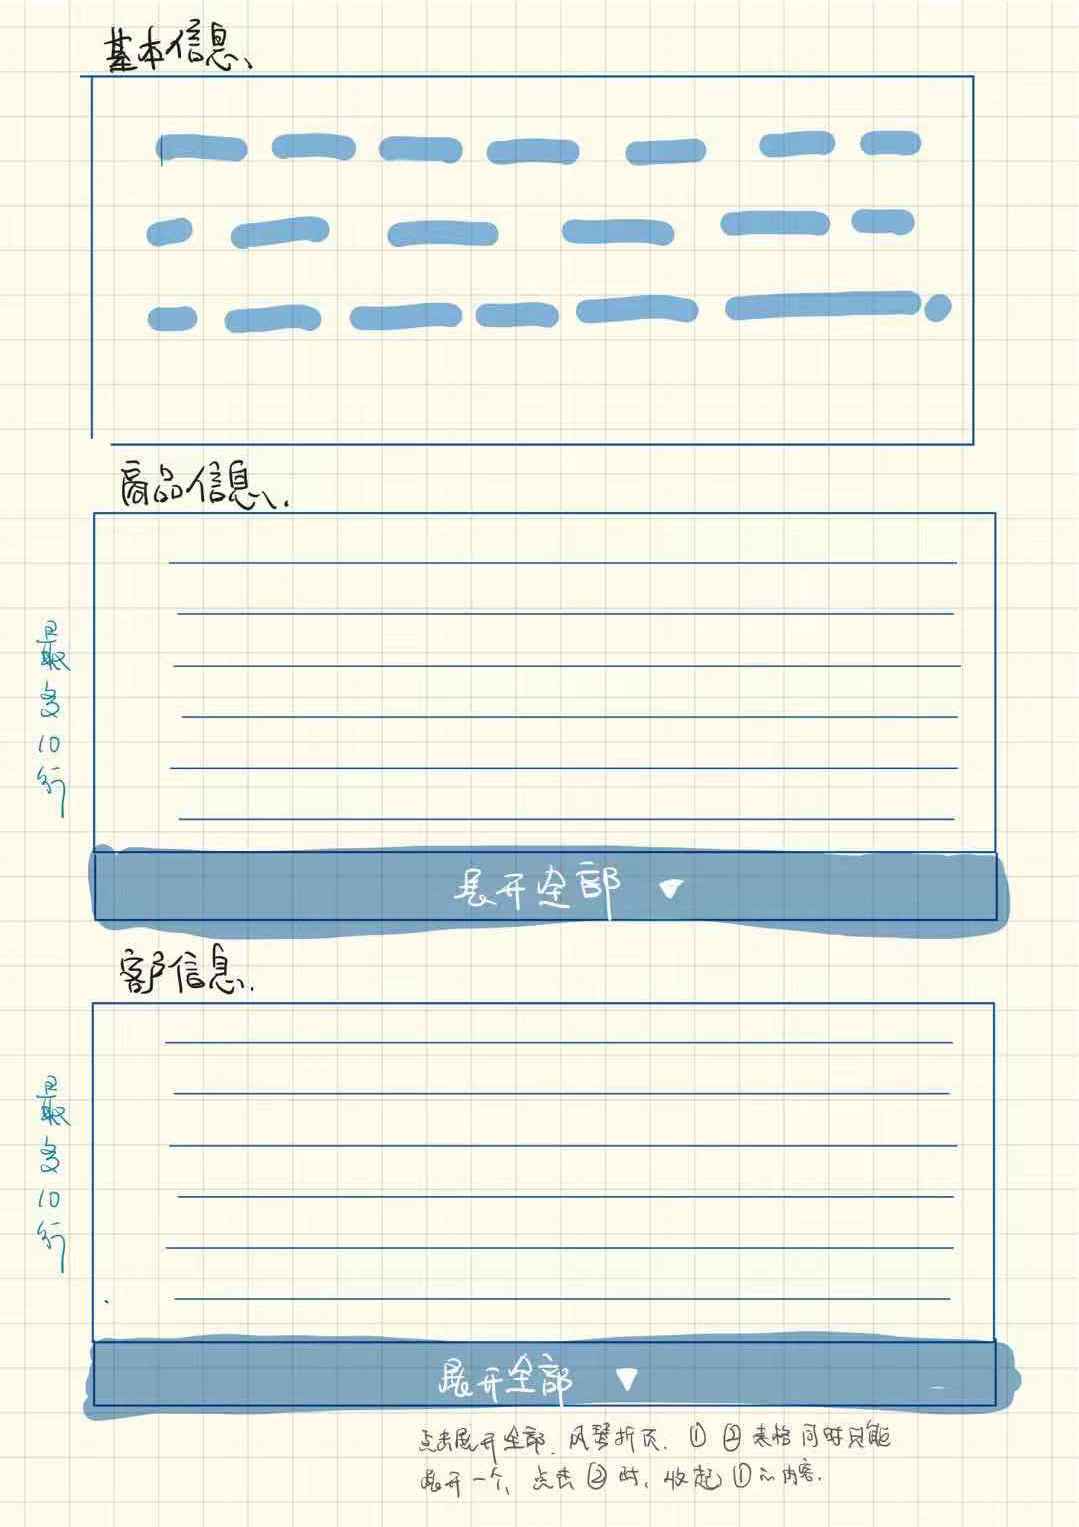 基本信息、
商品信息、.
最多10行
展开全部
客户信息.
最多10行
展开全部
点击展开全部、风琴折页、① ② 表格同时只能
展开一个、点击 ② 时、收起 ① 的内容.